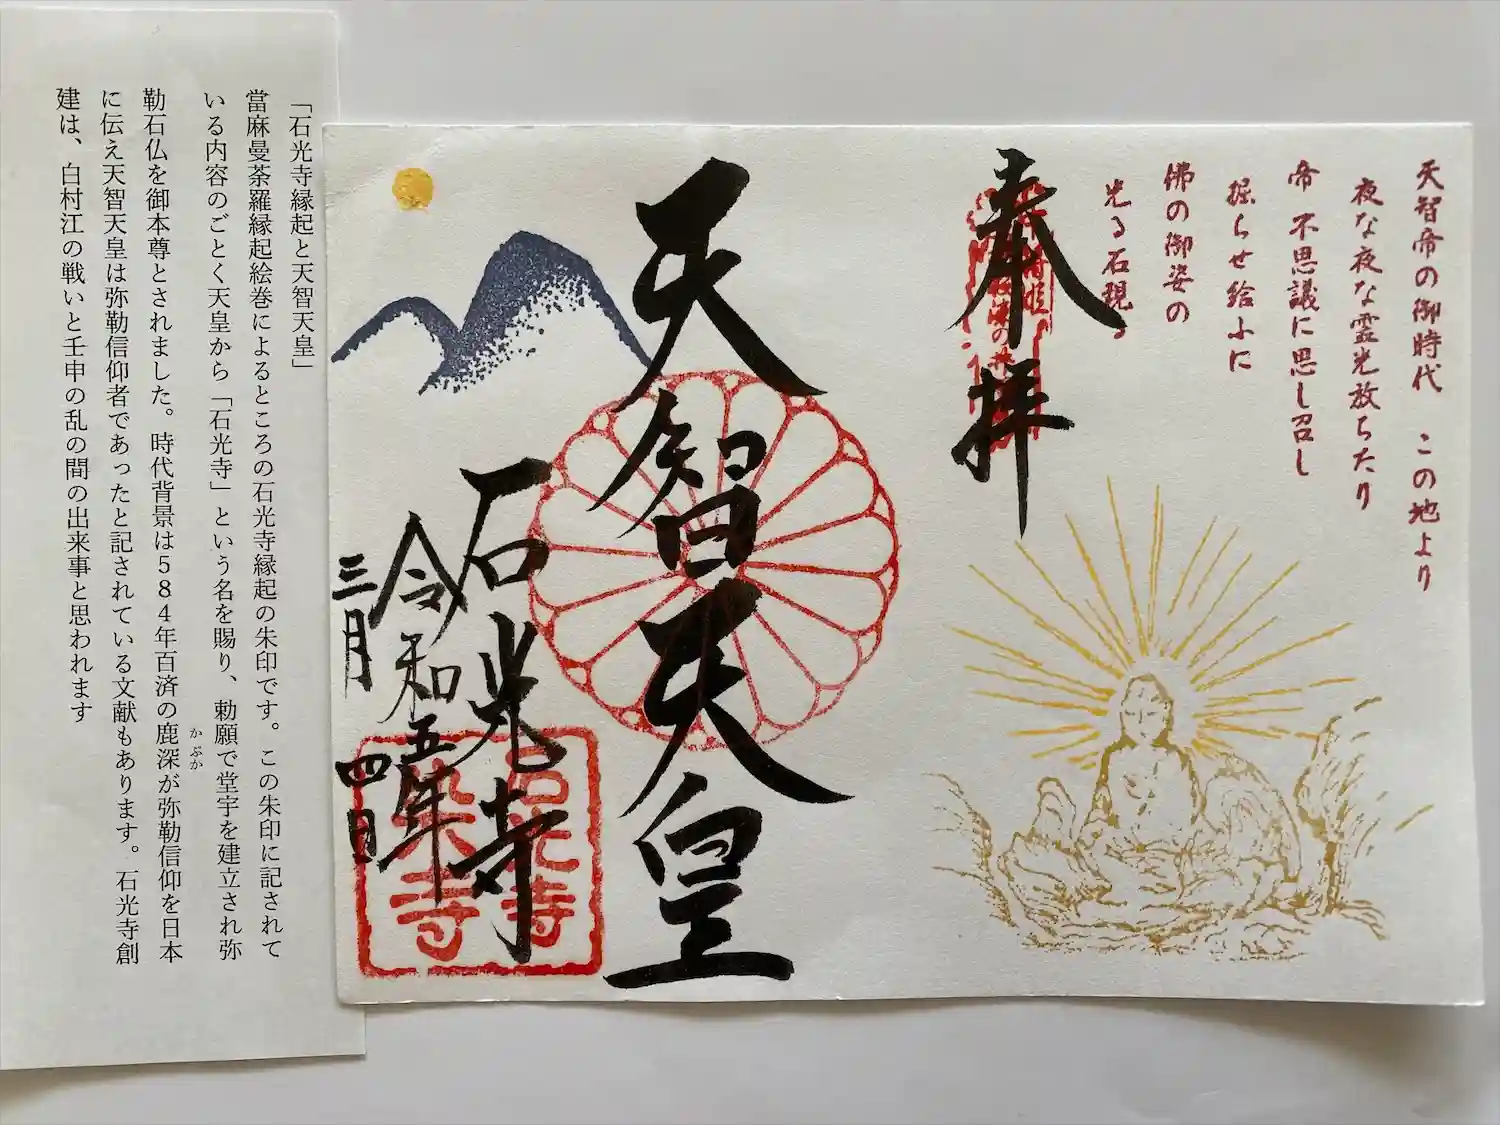 天智帝の御時代 この地より
夜な夜な霊光放ちたり
帝 不思議に思し召し
掘らせ給ふに
佛の御姿の
光る石現る
奉拝
天智天皇
石光寺
令和五年
三月四日
石光寺
染寺
「石光寺縁起と天智天皇」
當麻曼荼羅縁起絵巻によるところの石光寺縁起の朱印です。この朱印に記されて
いる内容のごとく天皇から「石光寺」という名を賜り、勅願で堂宇を建立され弥
勒石仏を御本尊とされました。時代背景は584年百済の鹿深が弥勒信仰を日本
かぶか
に伝え天智天皇は弥勒信仰者であったと記されている文献もあります。石光寺創
建は、白村江の戦いと壬申の乱の間の出来事と思われます